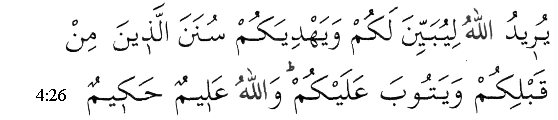 يُرِيدُ اللهُ لِيُبَيِّنَ لَكُمْ وَيَهْدِيَكُمْ سُنَنَ الَّذِينَ مِنْ
قَبْلِكُمْ وَيَتُوبَ عَلَيْكُمْ ۗ وَاللهُ عَلِيمٌ حَكِيمٌ 4:26